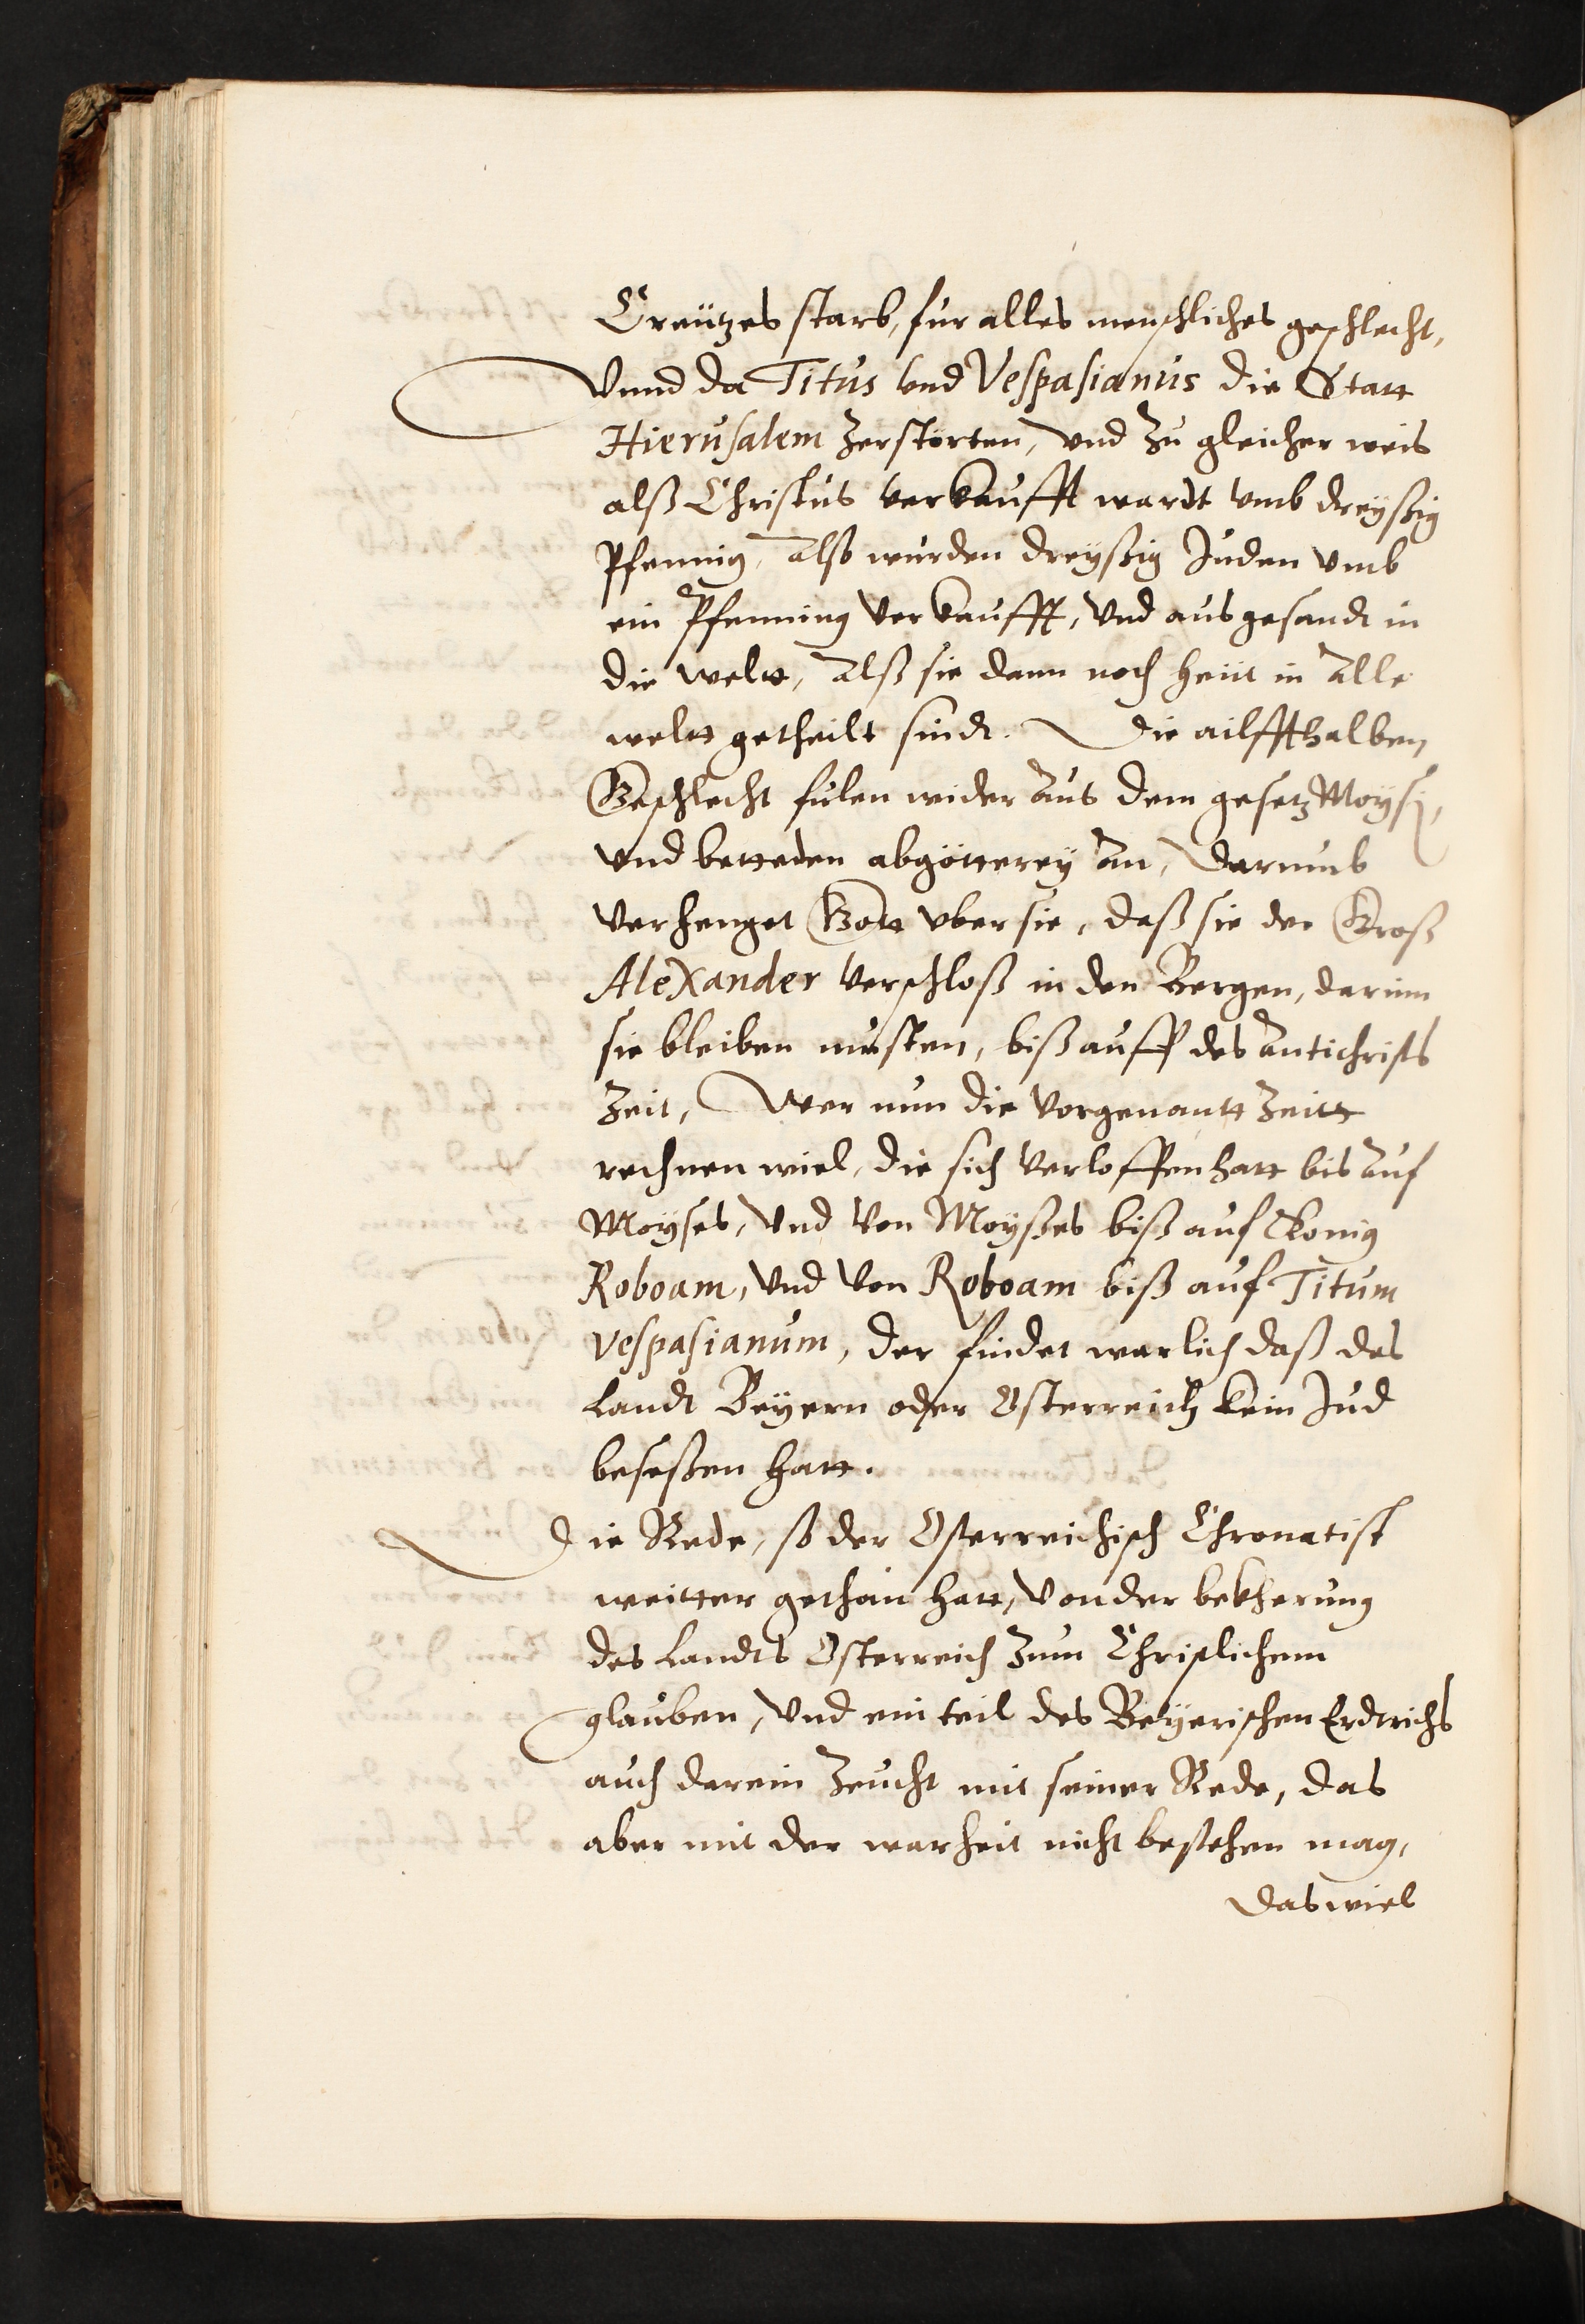 Creützes starb, für alles menschliches geschlecht,
Vnnd da Titus vnd Vespasianus die Statt
Hierusalem zerstörten, vnd zu gleicher weis
alß Christus verkaufft wardt vmb dreyßig
Pfennig, Also wurden dreyßig Juden vmb
ein Pfenning verkaufft, vnd aus gesandt in
die weltt, Alß sie dann noch heüt in Alle
weltt getheilt sindt. Die ailffthalben
Geschlecht fielen wider aus dem gesetz Moysi,
vnd betteden abgötterey an, Darumb
verhenget Gott vber sie, daß sie der Groß
Alexander verschloß in den Bergen, darinn
sie bleiben musten, biß auff des Antichrists
Zeit, Wer nun die vorgenantt Zeitt
rechnen wiel, die sich verloffen hatt bis auf
Moyses, vnd von Moyßes biß auf König
Roboam, vnd von Roboam biß auf Titum
Vespasianum, der findet warlich daß das
Landt Beyern oder Osterreich kein Jud
beseßen hatt.
Die Rede, so der Osterreichisch Chronatist
weitter gethan hatt, von der bekherung
des Landts Osterreich zum Christlichem
glauben, vnd ein teil des Beyerischen Erdtrichs
auch darein zeucht mit seiner Rede, das
aber mit der warheit nicht bestehen mag,
das wiel